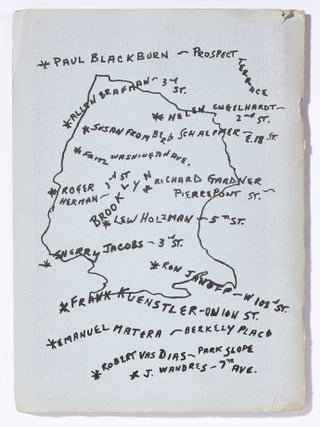 * PAUL BLACKBURN — PROSPECT TERRACE
* ALLEN BRAFMAN — 3rd ST.
* HELEN ENGELHARDT — 2nd ST.
* SUSAN FROMBERG SCHAEFFER — E. 18 ST.
* FRITZ WASHINGTON AVE.
* RICHARD GARDNER PIERREPONT ST.
* ROGER HERMAN — 3rd ST.
BROOKLYN
* LEW HOLZMAN — 5TH ST.
* SHERRY JACOBS — 3rd ST.
* RON JANOFF — W 102nd ST.
* FRANK KUENSTLER — UNION ST.
* EMANUEL MATERA — BERKELY PLACE
* ROBERT VAS DIAS — PARK SLOPE
* J. WANDRES — 7TH AVE.